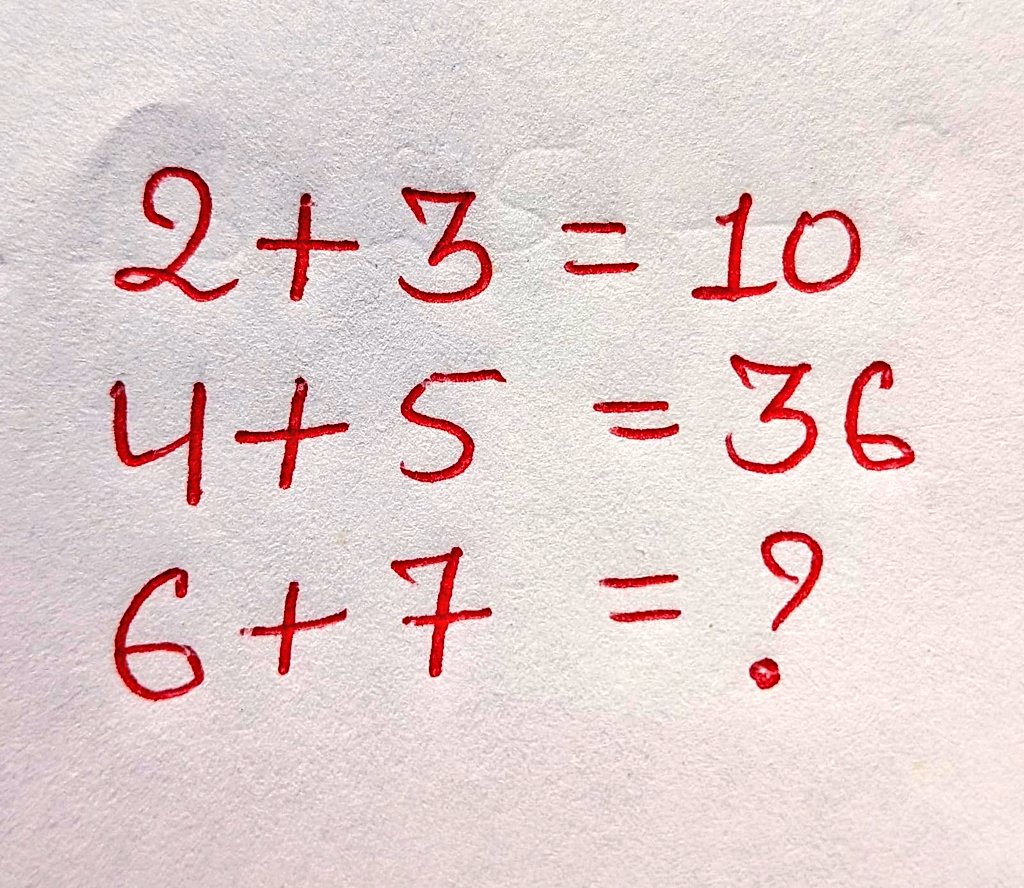 2 + 3 = 10
4 + 5 = 36
6 + 7 = ?